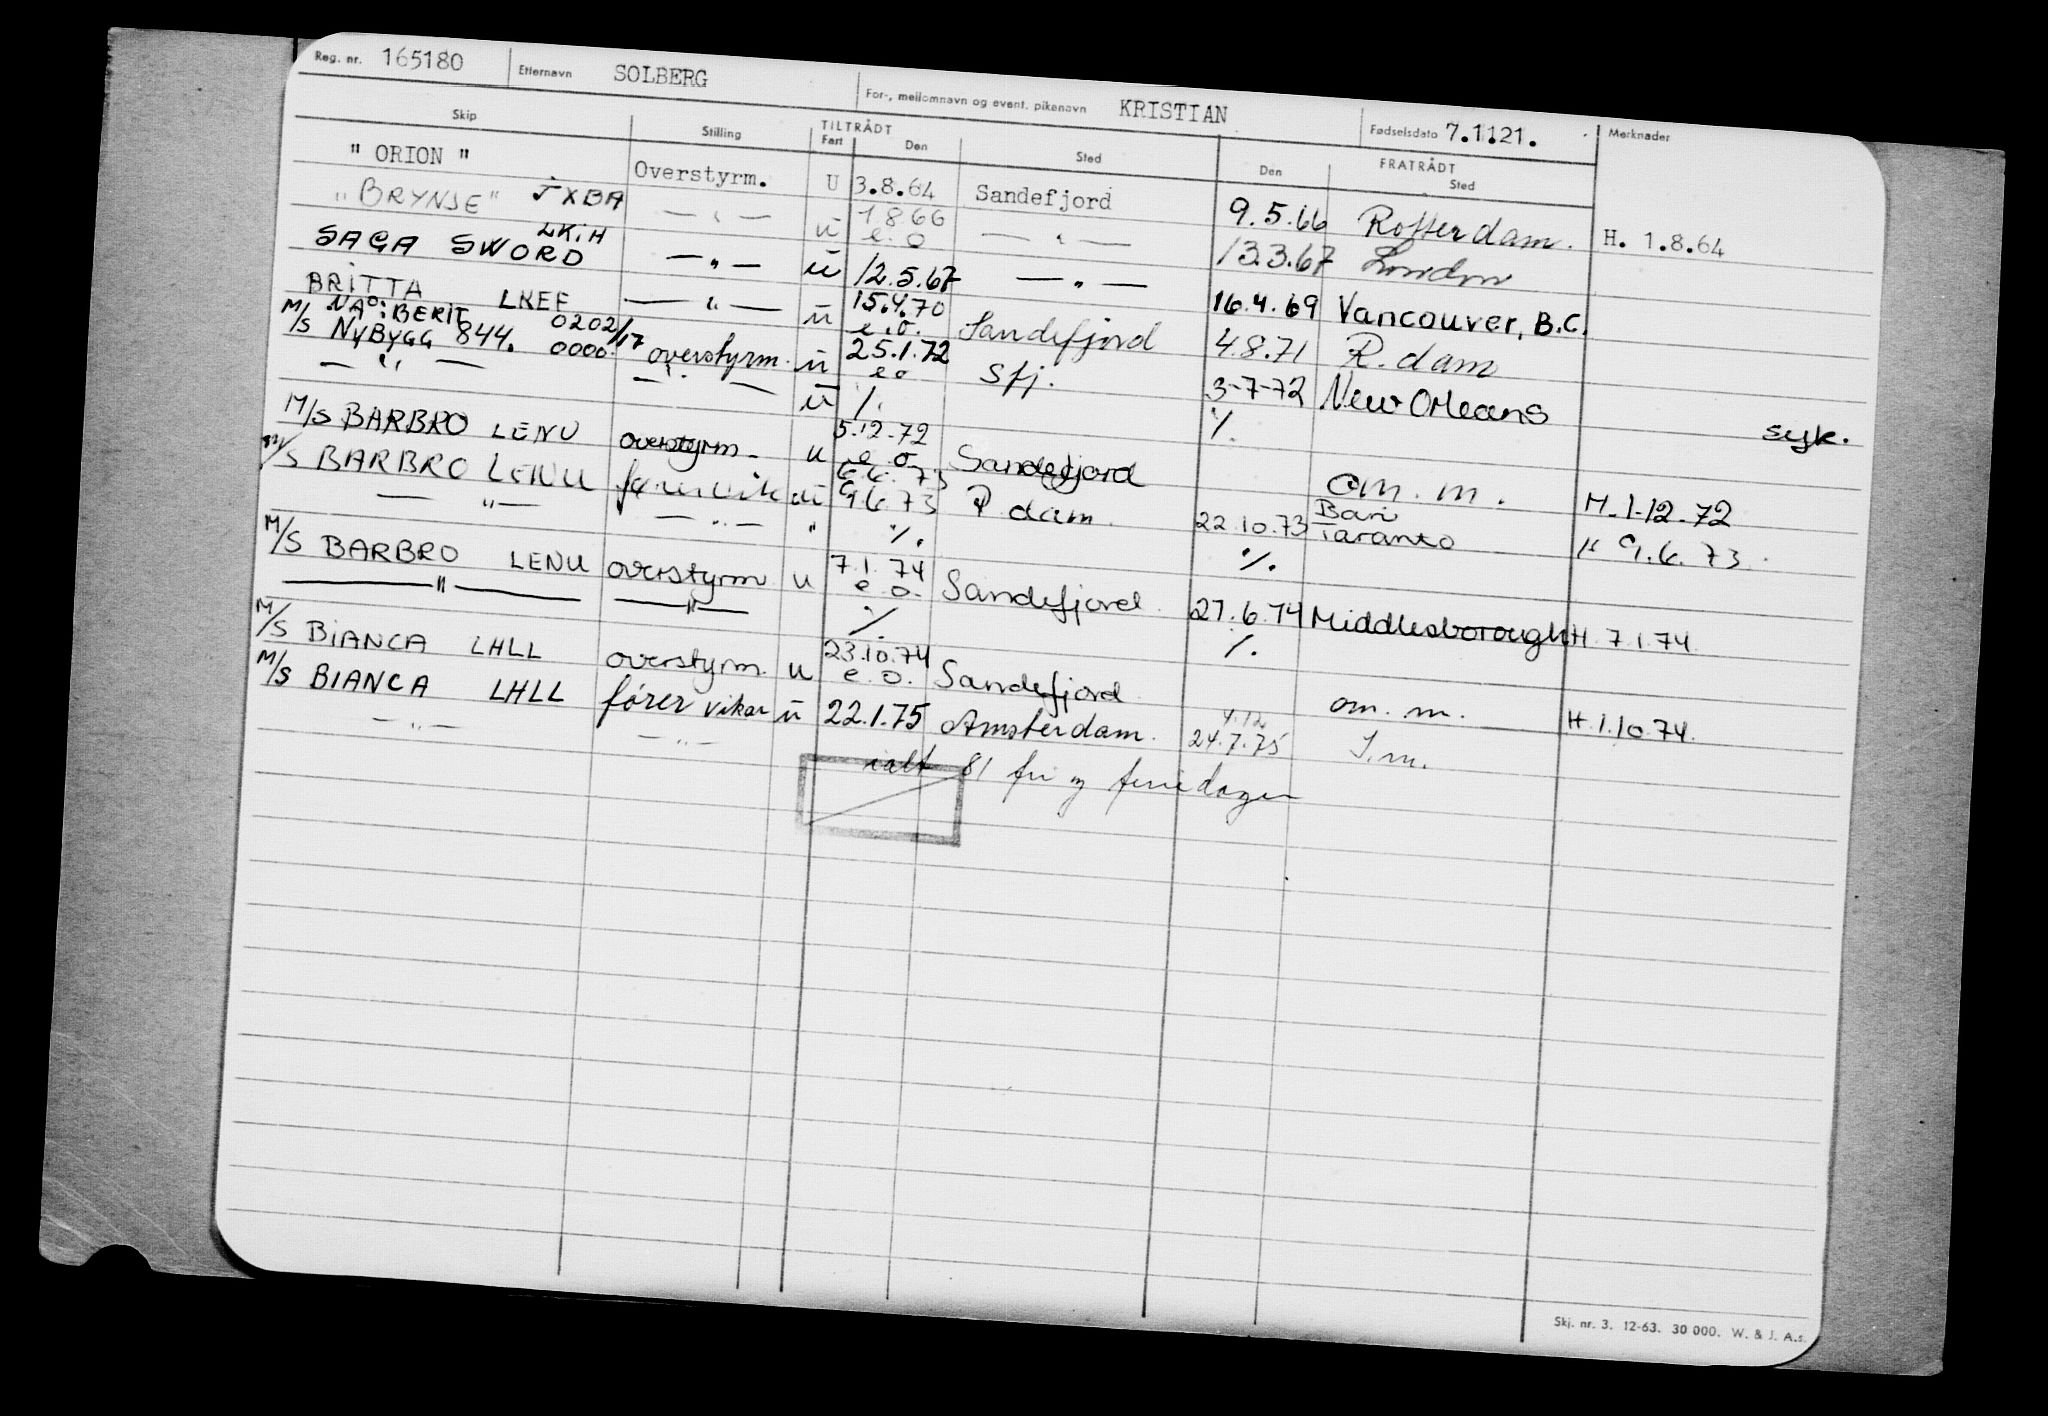 Reg. nr. 165180 Etternavn SOLBERG For-, mellomnavn og event. pikenavn KRISTIAN Fødselsdato 7.1121. Merknader
Skip Stilling TILTRÅDT Fart Den Sted FRATRÅDT Den Sted
" ORION " Overstyrm. U 3.8.64 Sandefjord 9.5.66 Rotterdam. H. 1.8.64
"BRYNJE" JXBA — " — u 1.8.66 e.o — " — 13.3.67 London
SAGA SWORD LKiH — " — ū 12.5.67 — " — 16.4.69 Vancouver, B.C.
BRiTTA LKEF — " — ū 15.4.70 e.o. Sandefjord 4.8.71 R.dam
M/S NyBygg 844. NÅ: BERiT 0202/17 0000. overstyrm. ū 25.1.72 eo Sfj. 3-7-72 New Orleans
— " — — " — ū %. %. syk.
M/S BARBRO LENU overstyrm. u 5.12.72 e.o. Sandefjord om. m. H. 1-12-72
M/S BARBRO LENU ū 6.6.73 9.6.73 R dam. 22.10.73 Bari Taranto H 9.6.73.
— " — — " — " %. %.
M/S BARBRO LENU overstyrm u 7.1.74 e.o. Sandefjord. 27.6.74 Middlesborough H. 7.1.74.
— " — — " — %. %.
M/S BiANCA LHLL overstyrm. u 23.10.74 e.o. Sandefjord om. m. H.1.10.74.
M/S BIANCA LHLL fører vikar ū 22.1.75 Amsterdam. 24.7.75 I.m.
— " — — " —
ialt 81 fri og feriedager
Skj. nr. 3. 12-63. 30 000. W. & J. A.s.